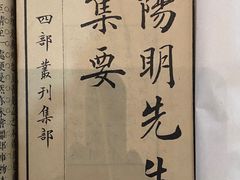 陽明先生
集要
四部叢刊集部